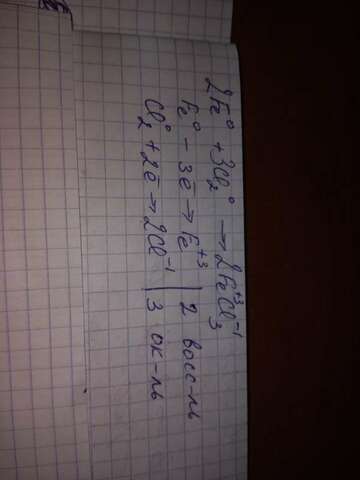 2Fe⁰ + 3Cl₂⁰ → 2Fe⁺³Cl₃⁻¹
Fe⁰ - 3ē → Fe⁺³ | 2 восс-ль
Cl₂⁰ + 2ē → 2Cl⁻¹ | 3 ок-ль